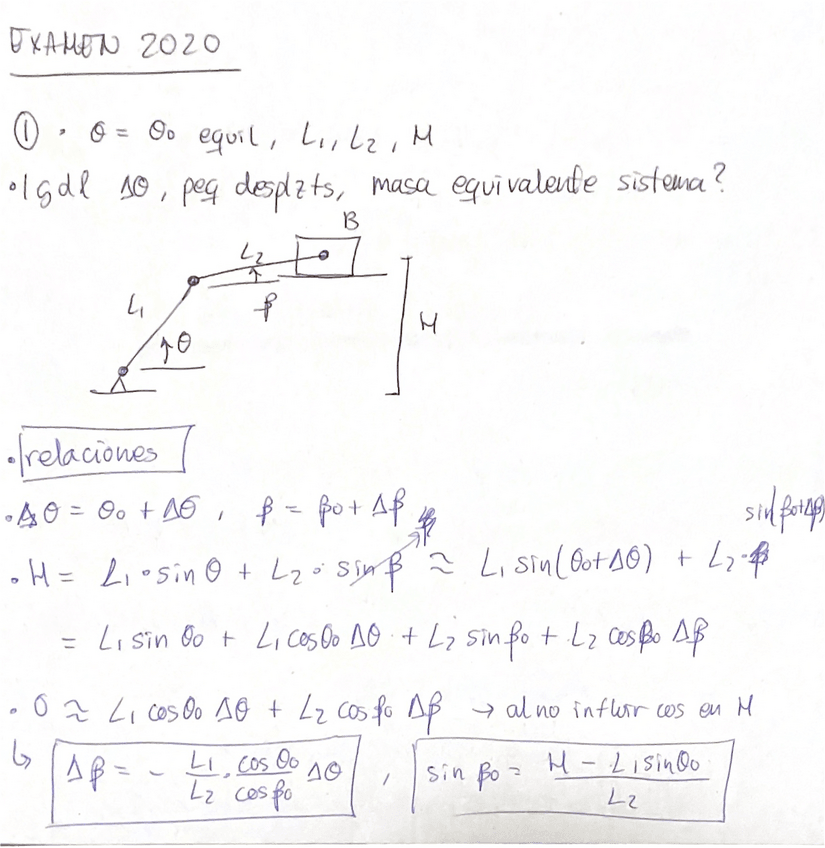 EXAMEN 2020
① · θ = θ₀ equil, L₁, L₂, H
· 1 gdl Δθ, peq desplzts, masa equivalente sistema?
B
L₂
L₁
β
H
θ
· relaciones
· θ = θ₀ + Δθ , β = β₀ + Δβ
sin(β₀+Δβ)
· H = L₁ · sin θ + L₂ · sin β ≈ L₁ sin(θ₀+Δθ) + L₂ ·
= L₁ sin θ₀ + L₁ cos θ₀ Δθ + L₂ sin β₀ + L₂ cos β₀ Δβ
· 0 ≈ L₁ cos θ₀ Δθ + L₂ cos β₀ Δβ → al no influir cos en H
↳ Δβ = - L₁/L₂ · cos θ₀/cos β₀ Δθ , sin β₀ = (H - L₁ sin θ₀)/L₂